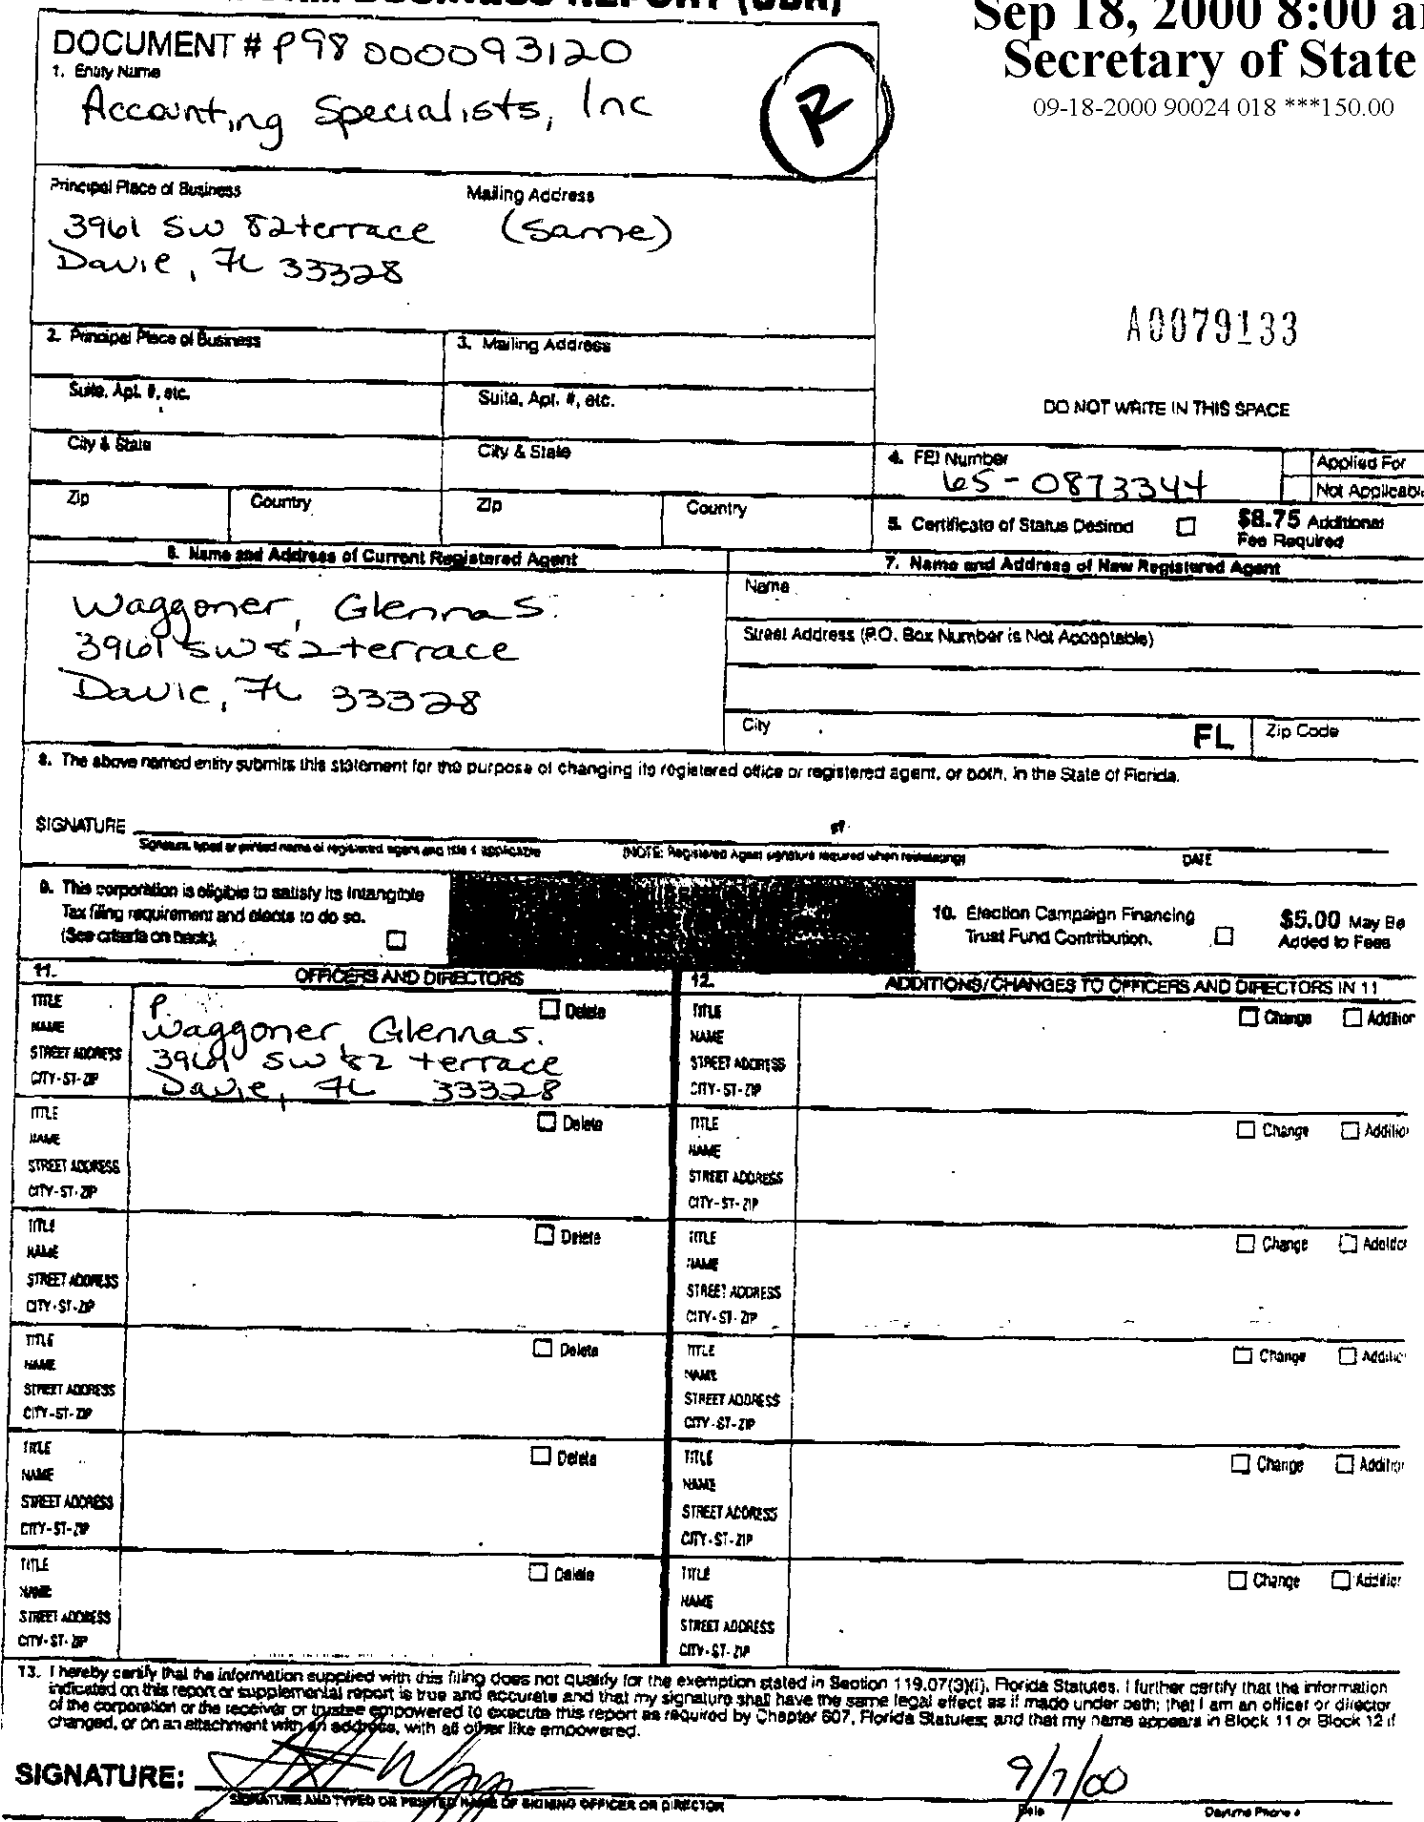 Sep 18, 2000 8:00 a
Secretary of State
09-18-2000 90024 018 ***150.00
DOCUMENT # P98000093120
1. Entity Name
Accounting Specialists, Inc
R
Principal Place of Business
Mailing Address
3961 SW 82 terrace
(Same)
Davie, FL 33328
A0079133
2. Principal Place of Business
3. Mailing Address
Suite, Apt. #, etc.
Suite, Apt. #, etc.
DO NOT WRITE IN THIS SPACE
City & State
City & State
4. FEI Number
65-0873344
Applied For
Not Applicabl
Zip
Country
Zip
Country
5. Certificate of Status Desired
$8.75 Additional
Fee Required
6. Name and Address of Current Registered Agent
7. Name and Address of New Registered Agent
Waggoner, Glenna S.
3961 SW 82 terrace
Davie, FL 33328
Name
Street Address (P.O. Box Number is Not Acceptable)
City
FL
Zip Code
8. The above named entity submits this statement for the purpose of changing its registered office or registered agent, or both, in the State of Florida.
SIGNATURE
Signature, typed or printed name of registered agent and title if applicable
(NOTE: Registered Agent signature required when reinstating)
DATE
9. This corporation is eligible to satisfy its Intangible
Tax filing requirement and elects to do so.
(See criteria on back).
10. Election Campaign Financing
Trust Fund Contribution.
$5.00 May Be
Added to Fees
11.
OFFICERS AND DIRECTORS
12.
ADDITIONS/CHANGES TO OFFICERS AND DIRECTORS IN 11
TITLE
P.
Delete
NAME
Waggoner, Glenna S.
STREET ADDRESS
3961 SW 82 terrace
CITY-ST-ZIP
Davie, FL 33328
TITLE
Change
Addition
NAME
STREET ADDRESS
CITY-ST-ZIP
TITLE
Delete
NAME
STREET ADDRESS
CITY-ST-ZIP
TITLE
Change
Additio
NAME
STREET ADDRESS
CITY-ST-ZIP
TITLE
Delete
NAME
STREET ADDRESS
CITY-ST-ZIP
TITLE
Change
Additio
NAME
STREET ADDRESS
CITY-ST-ZIP
TITLE
Delete
NAME
STREET ADDRESS
CITY-ST-ZIP
TITLE
Change
Additio
NAME
STREET ADDRESS
CITY-ST-ZIP
TITLE
Delete
NAME
STREET ADDRESS
CITY-ST-ZIP
TITLE
Change
Additio
NAME
STREET ADDRESS
CITY-ST-ZIP
TITLE
Delete
NAME
STREET ADDRESS
CITY-ST-ZIP
TITLE
Change
Addition
NAME
STREET ADDRESS
CITY-ST-ZIP
13. I hereby certify that the information supplied with this filing does not qualify for the exemption stated in Section 119.07(3)(i), Florida Statutes. I further certify that the information
indicated on this report or supplemental report is true and accurate and that my signature shall have the same legal effect as if made under oath; that I am an officer or director
of the corporation or the receiver or trustee empowered to execute this report as required by Chapter 607, Florida Statutes; and that my name appears in Block 11 or Block 12 if
changed, or on an attachment with an address, with all other like empowered.
SIGNATURE:
9/7/00
SIGNATURE AND TYPED OR PRINTED NAME OF SIGNING OFFICER OR DIRECTOR
Date
Daytime Phone #